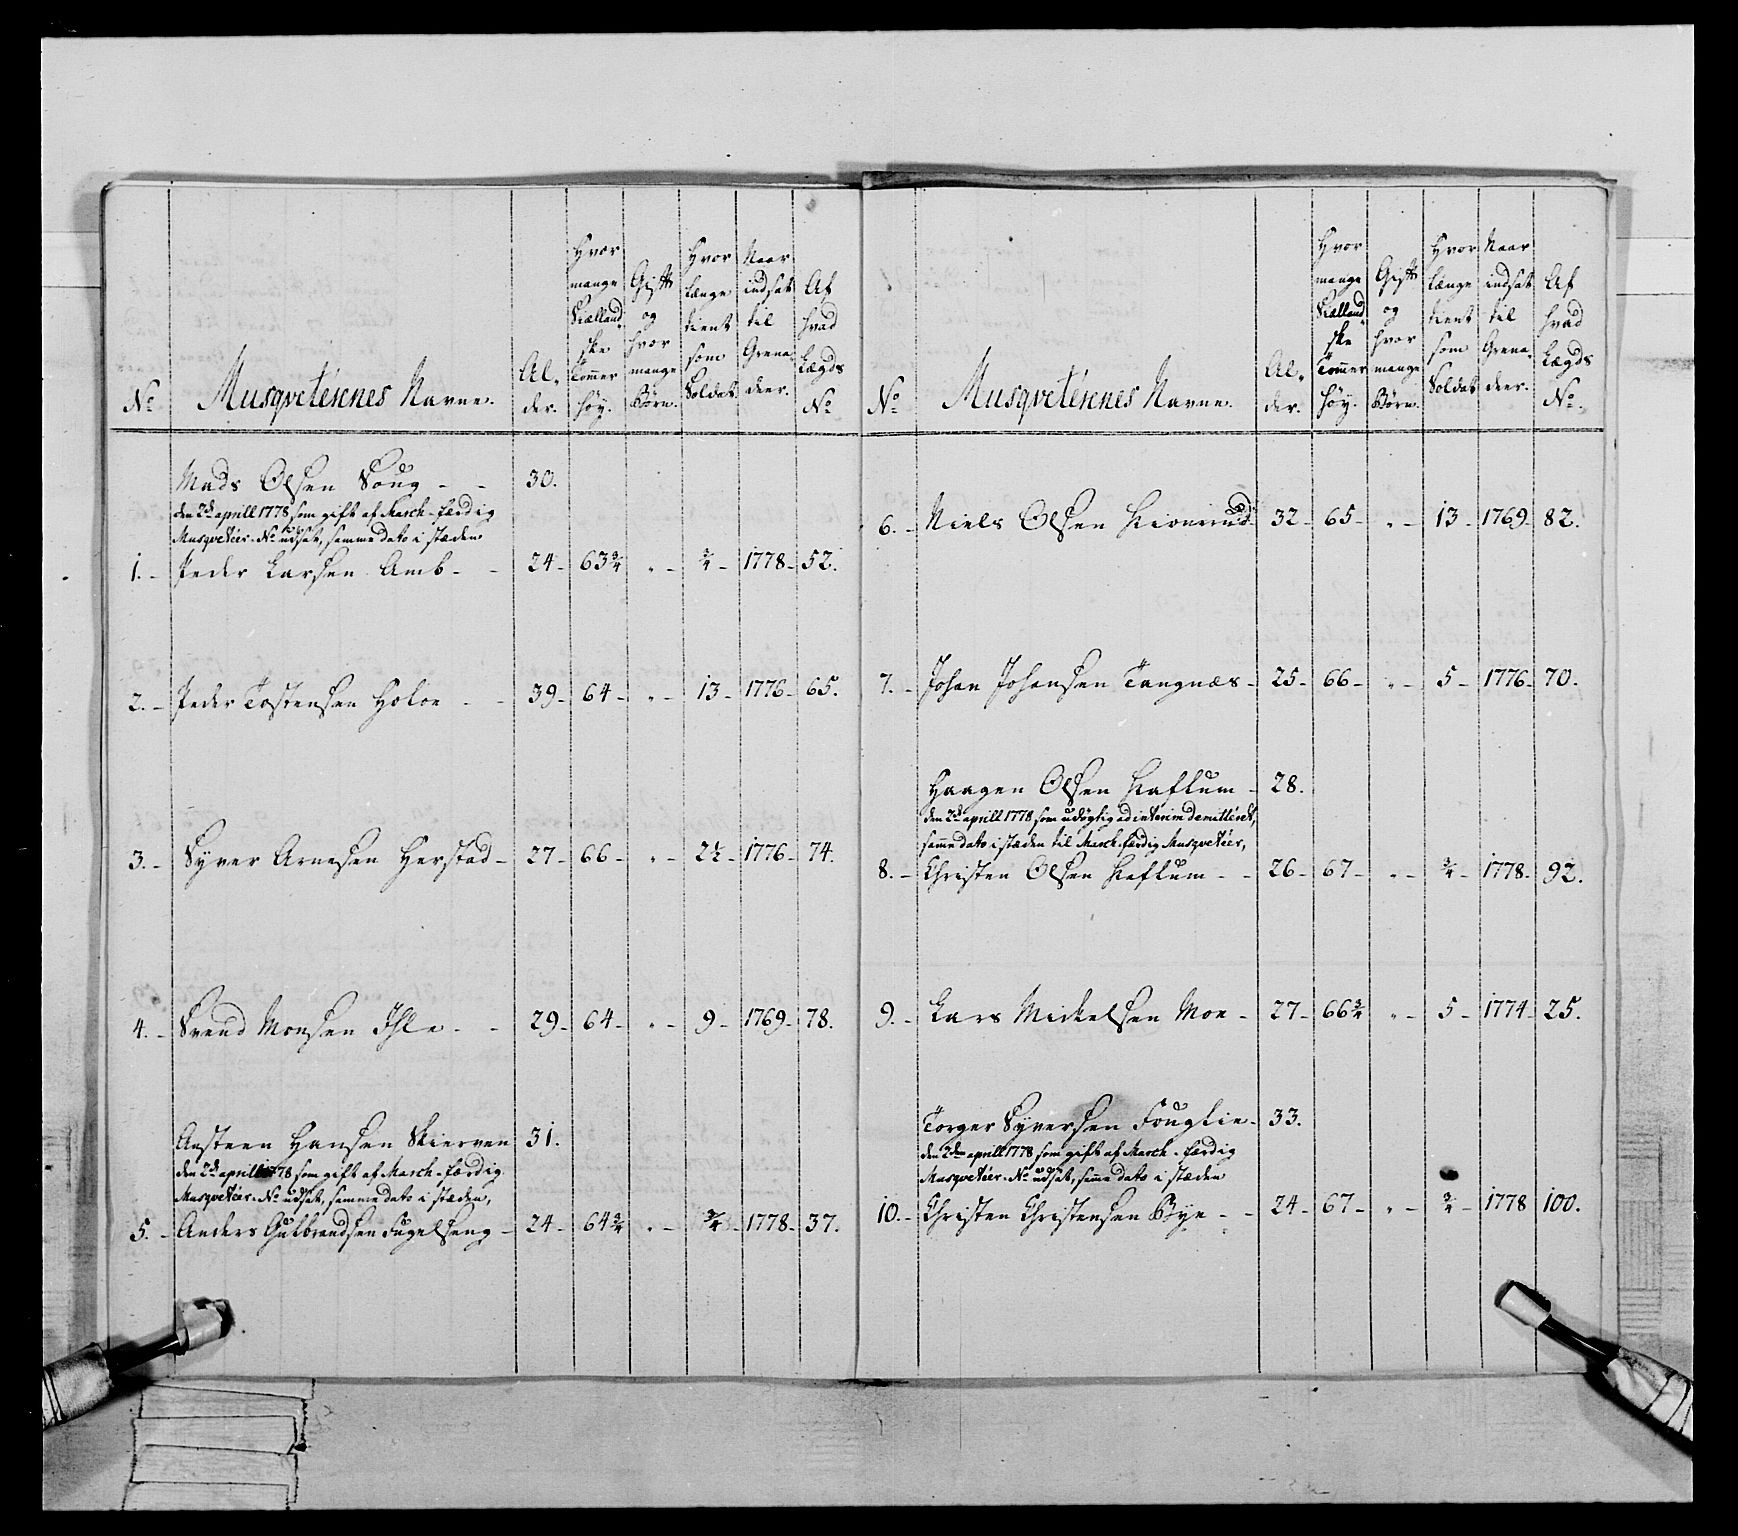 No Musqveteérernes Navne. Al„der. Hvor mange Siælland„ske Tommer høy. Gift og hvor mange Børn. Hvor længe tient som Soldat. Naar indsat til Grena„deer. Af hvad Lægds No
Mads Olsen Soug - - 30.
den 2de aprill 1778 som gift af March-færdig
Musqveteér No udsat, samme dato i stæden
1. - Peder Larsen Amb - - 24 - 63¾ „ - ¾ - 1778 - 52.
2. - Peder Tostensen Holoe - - 39 - 64 - „ - 13 - 1776 - 65.
3. - Syver Arnesen Herstad - 27 - 66 - „ - 2½ - 1776 - 74.
4. - Svend Monsen Ihle - - 29 - 64 - „ - 9 - 1769 - 78.
Aasteen Hansen Skierven 31.
den 2de aprill 1778 som gift af March-færdig
Musqveteér No udsat, samme dato i stæden,
5. - Anders Gulbrandsen Fugelseng - 24 - 64¾ „ - ¾ - 1778 - 37.
No Musqveteérernes Navne. Al„der. Hvor mange Siælland„ske Tommer høy. Gift og hvor mange Børn. Hvor længe tient som Soldat Naar indsat til Grena„deer. Af hvad Lægds No.
6. - Niels Olsen 32 - 65 - „ - 13 - 1769 - 82.
7. - Johan Johansen Tangnæs - 25 - 66 - „ - 5 - 1776 - 70.
Haagen Olsen Haflum - 28.
den 2de aprill 1778 som udøgtig ad interim demitteret,
samme dato i stæden til March-færdig Musqveteér,
8. - Christen Olsen Haflum - - 26 - 67 - „ - ¾ - 1778 - 92.
9. - Lars Mickelsen Moe - 27 - 66¾ „ - 5 - 1774 - 25.
Torger Syversen Fouglie - 33.
den 2den aprill 1778 som gift af March-færdig
Musqveteér No udsat, samme dato i stæden
10. - Christen Christensen Bye - - 24 - 67 - „ - ¾ - 1778 100.